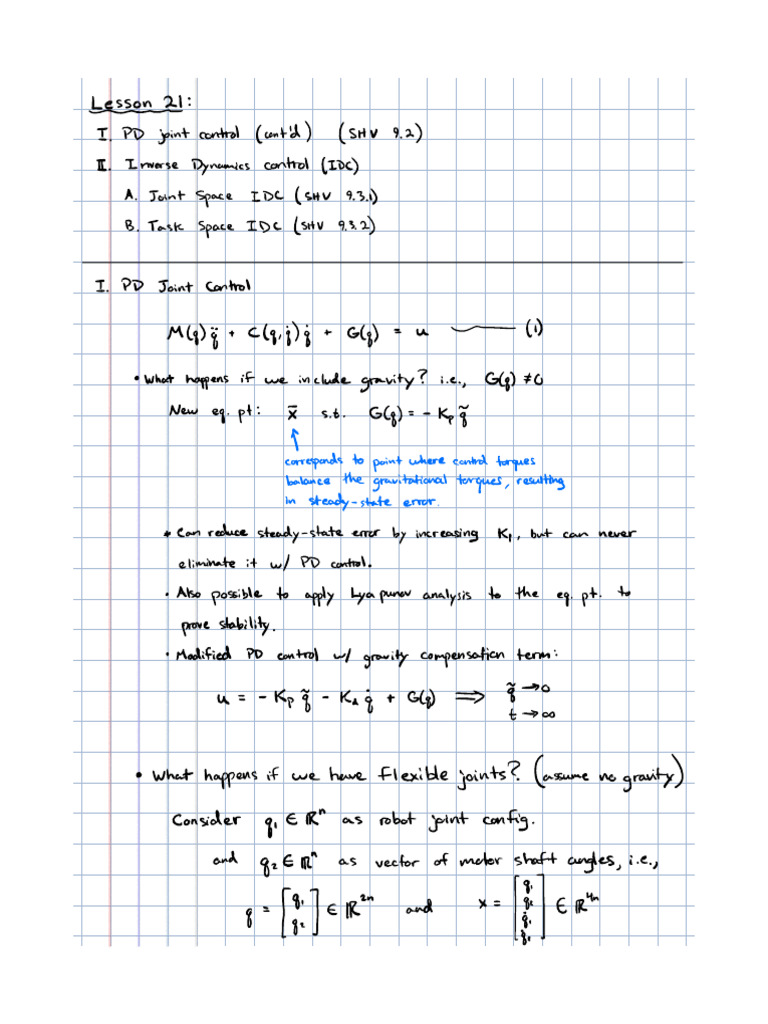 Lesson 21:
I. PD joint control (cont'd) (SHV 9.2)
II. Inverse Dynamics control (IDC)
A. Joint Space IDC (SHV 9.3.1)
B. Task Space IDC (SHV 9.3.2)
I. PD Joint Control
M(q)q̈ + C(q,q̇)q̇ + G(q) = u — (1)
• What happens if we include gravity? i.e., G(q) ≠ 0
New eq. pt: x̄ s.t. G(q) = -Kp q̃
corresponds to point where control torques
balance the gravitational torques, resulting
in steady-state error.
* Can reduce steady-state error by increasing K1, but can never
eliminate it w/ PD control.
• Also possible to apply Lyapunov analysis to the eq. pt. to
prove stability.
• Modified PD control w/ gravity compensation term:
u = -Kp q̃ - Kd q̇ + G(q) ⟹ q̃ → 0
t → ∞
• What happens if we have flexible joints? (assume no gravity)
Consider q1 ∈ ℝ^n as robot joint config.
and q2 ∈ ℝ^n as vector of motor shaft angles, i.e.,
q = [q1 q2] ∈ ℝ^2n and x = [q1 q2 q̇1 q̇1] ∈ ℝ^4n